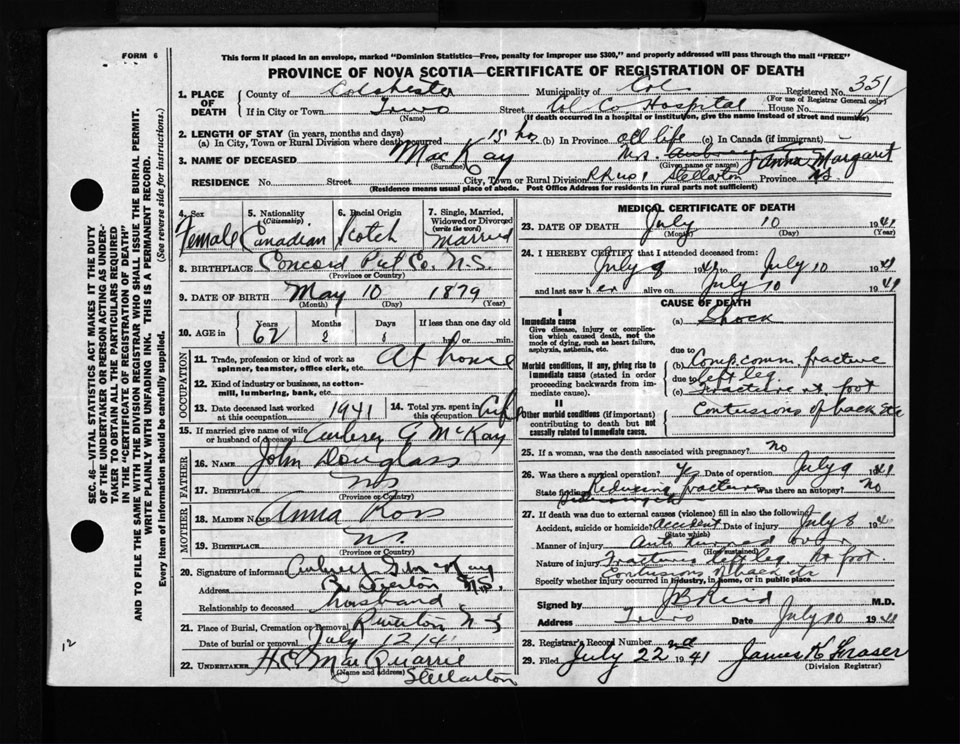 FORM 6
This form if placed in an envelope, marked "Dominion Statistics—Free, penalty for improper use $300," and properly addressed will pass through the mail "FREE"
PROVINCE OF NOVA SCOTIA—CERTIFICATE OF REGISTRATION OF DEATH
1. PLACE OF DEATH
County of Colchester Municipality of Col. Registered No. 351
(For use of Registrar General only)
If in City or Town Truro Street Col. Co Hospital House No.
(Name) (If death occurred in a hospital or institution, give the name instead of street and number)
2. LENGTH OF STAY (in years, months and days)
(a) In City, Town or Rural Division where death occurred 15 hrs (b) In Province all life (c) In Canada (if immigrant) -
3. NAME OF DECEASED MacKay Mrs. Anna Margaret
(Surname) (Given name or names)
RESIDENCE No. Street City, Town or Rural Division Stellarton Province NS
(Residence means usual place of abode. Post Office Address for residents in rural parts not sufficient)
4. Sex Female
5. Nationality (Citizenship) Canadian
6. Racial Origin Scotch
7. Single, Married, Widowed or Divorced (write the word) Married
8. BIRTHPLACE Concord Pict Co. N.S.
(Province or Country)
9. DATE OF BIRTH May 10 1879
(Month) (Day) (Year)
10. AGE in Years 62 Months 2 Days If less than one day old hr. or min.
OCCUPATION
11. Trade, profession or kind of work as spinner, teamster, office clerk, etc. At home
12. Kind of industry or business, as cotton-mill, lumbering, bank, etc.
13. Date deceased last worked at this occupation 1941
14. Total yrs. spent in this occupation
15. If married give name of wife or husband of deceased Aubrey G McKay
FATHER
16. NAME John Douglass
17. BIRTHPLACE NS
(Province or Country)
MOTHER
18. MAIDEN NAME Anna Ross
19. BIRTHPLACE N.S.
(Province or Country)
20. Signature of informant Aubrey G. McKay
Address Riverton N.S.
Relationship to deceased husband
21. Place of Burial, Cremation or Removal Riverton N S
Date of burial or removal July 12/41
22. UNDERTAKER H C MacQuarrie
(Name and Address) Stellarton
MEDICAL CERTIFICATE OF DEATH
23. DATE OF DEATH July 10 1941
(Month) (Day) (Year)
24. I HEREBY CERTIFY that I attended deceased from:
July 9 1941 to July 10 1941
and last saw her alive on July 10 1941
CAUSE OF DEATH
I
Immediate cause
Give disease, injury or complication which caused death, not the mode of dying, such as heart failure, asphyxia, asthenia, etc.
(a) Shock
due to
Morbid conditions, if any, giving rise to immediate cause (stated in order proceeding backwards from immediate cause).
(b) Comp. comm. fracture
due to left leg
(c) Fracture rt foot
II
Other morbid conditions (if important) contributing to death but not causally related to immediate cause.
Contusions of back etc
25. If a woman, was the death associated with pregnancy? no
26. Was there a surgical operation? Yes Date of operation July 9 1941
State findings Reducing fracture Was there an autopsy? No
27. If death was due to external causes (violence) fill in also the following:
Accident, suicide or homicide? accident Date of injury July 8 194
(State which)
Manner of injury Auto turned over
(How sustained)
Nature of injury Fracture left leg rt foot
Contusions of back etc
Specify whether injury occurred in industry, in home, or in public place
Signed by M.D.
Address Truro Date July 10 1941
28. Registrar's Record Number
29. Filed July 22nd 1941 James K Fraser
(Division Registrar)
SEC. 46—VITAL STATISTICS ACT MAKES IT THE DUTY
OF THE UNDERTAKER OR PERSON ACTING AS UNDER-
TAKER TO OBTAIN ALL THE PARTICULARS REQUIRED
IN THE "CERTIFICATE OF REGISTRATION OF DEATH"
AND TO FILE THE SAME WITH THE DIVISION REGISTRAR WHO SHALL ISSUE THE BURIAL PERMIT.
WRITE PLAINLY WITH UNFADING INK. THIS IS A PERMANENT RECORD.
Every item of information should be carefully supplied. (See reverse side for instructions.)
12